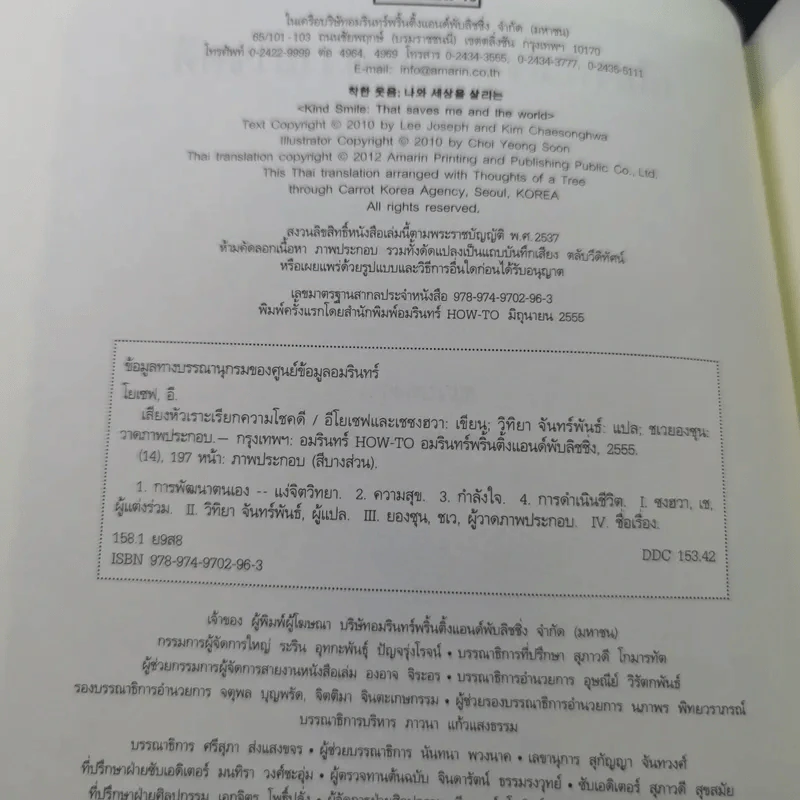 ในเครือบริษัทอมรินทร์พริ้นติ้งแอนด์พับลิชชิ่ง จำกัด (มหาชน)
65/101-103 ถนนชัยพฤกษ์ (บรมราชชนนี) เขตตลิ่งชัน กรุงเทพฯ 10170
โทรศัพท์ 0-2422-9999 ต่อ 4964, 4969 โทรสาร 0-2434-3555, 0-2434-3777, 0-2435-5111
E-mail: info@amarin.co.th
착한 웃음: 나와 세상을 살리는
<Kind Smile: That saves me and the world>
Text Copyright © 2010 by Lee Joseph and Kim Chaesonghwa
Illustrator Copyright © 2010 by Choi Yeong Soon
Thai translation copyright © 2012 Amarin Printing and Publishing Public Co., Ltd.
This Thai translation arranged with Thoughts of a Tree
through Carrot Korea Agency, Seoul, KOREA
All rights reserved.
สงวนลิขสิทธิ์หนังสือเล่มนี้ตามพระราชบัญญัติ พ.ศ. 2537
ห้ามคัดลอกเนื้อหา ภาพประกอบ รวมทั้งดัดแปลงเป็นแถบบันทึกเสียง ตลับวีดิทัศน์
หรือเผยแพร่ด้วยรูปแบบและวิธีการอื่นใดก่อนได้รับอนุญาต
เลขมาตรฐานสากลประจำหนังสือ 978-974-9702-96-3
พิมพ์ครั้งแรกโดยสำนักพิมพ์อมรินทร์ HOW-TO มิถุนายน 2555
ข้อมูลทางบรรณานุกรมของศูนย์ข้อมูลอมรินทร์
โยเซฟ, อี.
เสียงหัวเราะเรียกความโชคดี / อีโยเซฟและเชซงฮวา: เขียน; วิทิยา จันทร์พันธ์: แปล; ชเวยองซุน:
วาดภาพประกอบ.— กรุงเทพฯ: อมรินทร์ HOW-TO อมรินทร์พริ้นติ้งแอนด์พับลิชชิ่ง, 2555.
(14), 197 หน้า: ภาพประกอบ (สีบางส่วน).
1. การพัฒนาตนเอง -- แง่จิตวิทยา. 2. ความสุข. 3. กำลังใจ. 4. การดำเนินชีวิต. I. ซงฮวา, เช,
ผู้แต่งร่วม. II. วิทิยา จันทร์พันธ์, ผู้แปล. III. ยองซุน, ชเว, ผู้วาดภาพประกอบ. IV. ชื่อเรื่อง.
158.1 ย9ส8
DDC 153.42
ISBN 978-974-9702-96-3
เจ้าของ ผู้พิมพ์ผู้โฆษณา บริษัทอมรินทร์พริ้นติ้งแอนด์พับลิชชิ่ง จำกัด (มหาชน)
กรรมการผู้จัดการใหญ่ ระริน อุทกะพันธุ์ ปัญจรุ่งโรจน์ • บรรณาธิการที่ปรึกษา สุภาวดี โกมารทัต
ผู้ช่วยกรรมการผู้จัดการสายงานหนังสือเล่ม องอาจ จิระอร • บรรณาธิการอำนวยการ อุษณีย์ วิรัตกพันธ์
รองบรรณาธิการอำนวยการ จตุพล บุญพรัด, จิตติมา จินตะเกษกรรม • ผู้ช่วยรองบรรณาธิการอำนวยการ นภาพร พิทยวราภรณ์
บรรณาธิการบริหาร ภาวนา แก้วแสงธรรม
บรรณาธิการ ศรีสุภา ส่งแสงขจร • ผู้ช่วยบรรณาธิการ นันทนา พวงนาค • เลขานุการ สุกัญญา จันทวงศ์
ที่ปรึกษาฝ่ายซับเอดิเตอร์ มนทิรา วงศ์ชะอุ่ม • ผู้ตรวจทานต้นฉบับ จินดารัตน์ ธรรมรงวุทย์ • ซับเอดิเตอร์ สุภาวดี สุขสมัย
ที่ปรึกษาฝ่ายศิลปกรรม เอกจิตร โพธิ์ปลั่ง